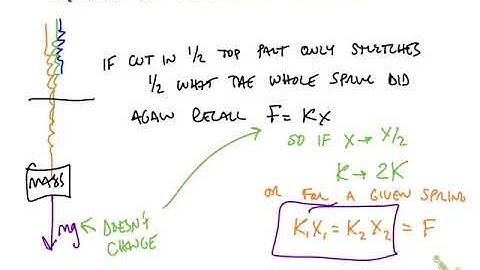 IF CUT IN 1/2 TOP PART ONLY STRETCHES
1/2 WHAT THE WHOLE SPRING DID
AGAIN RECALL F = Kx
SO IF X → X/2
K → 2K
OR FOR A GIVEN SPRING
K₁X₁ = K₂X₂ = F
MASS
mg
DOESN'T
CHANGE